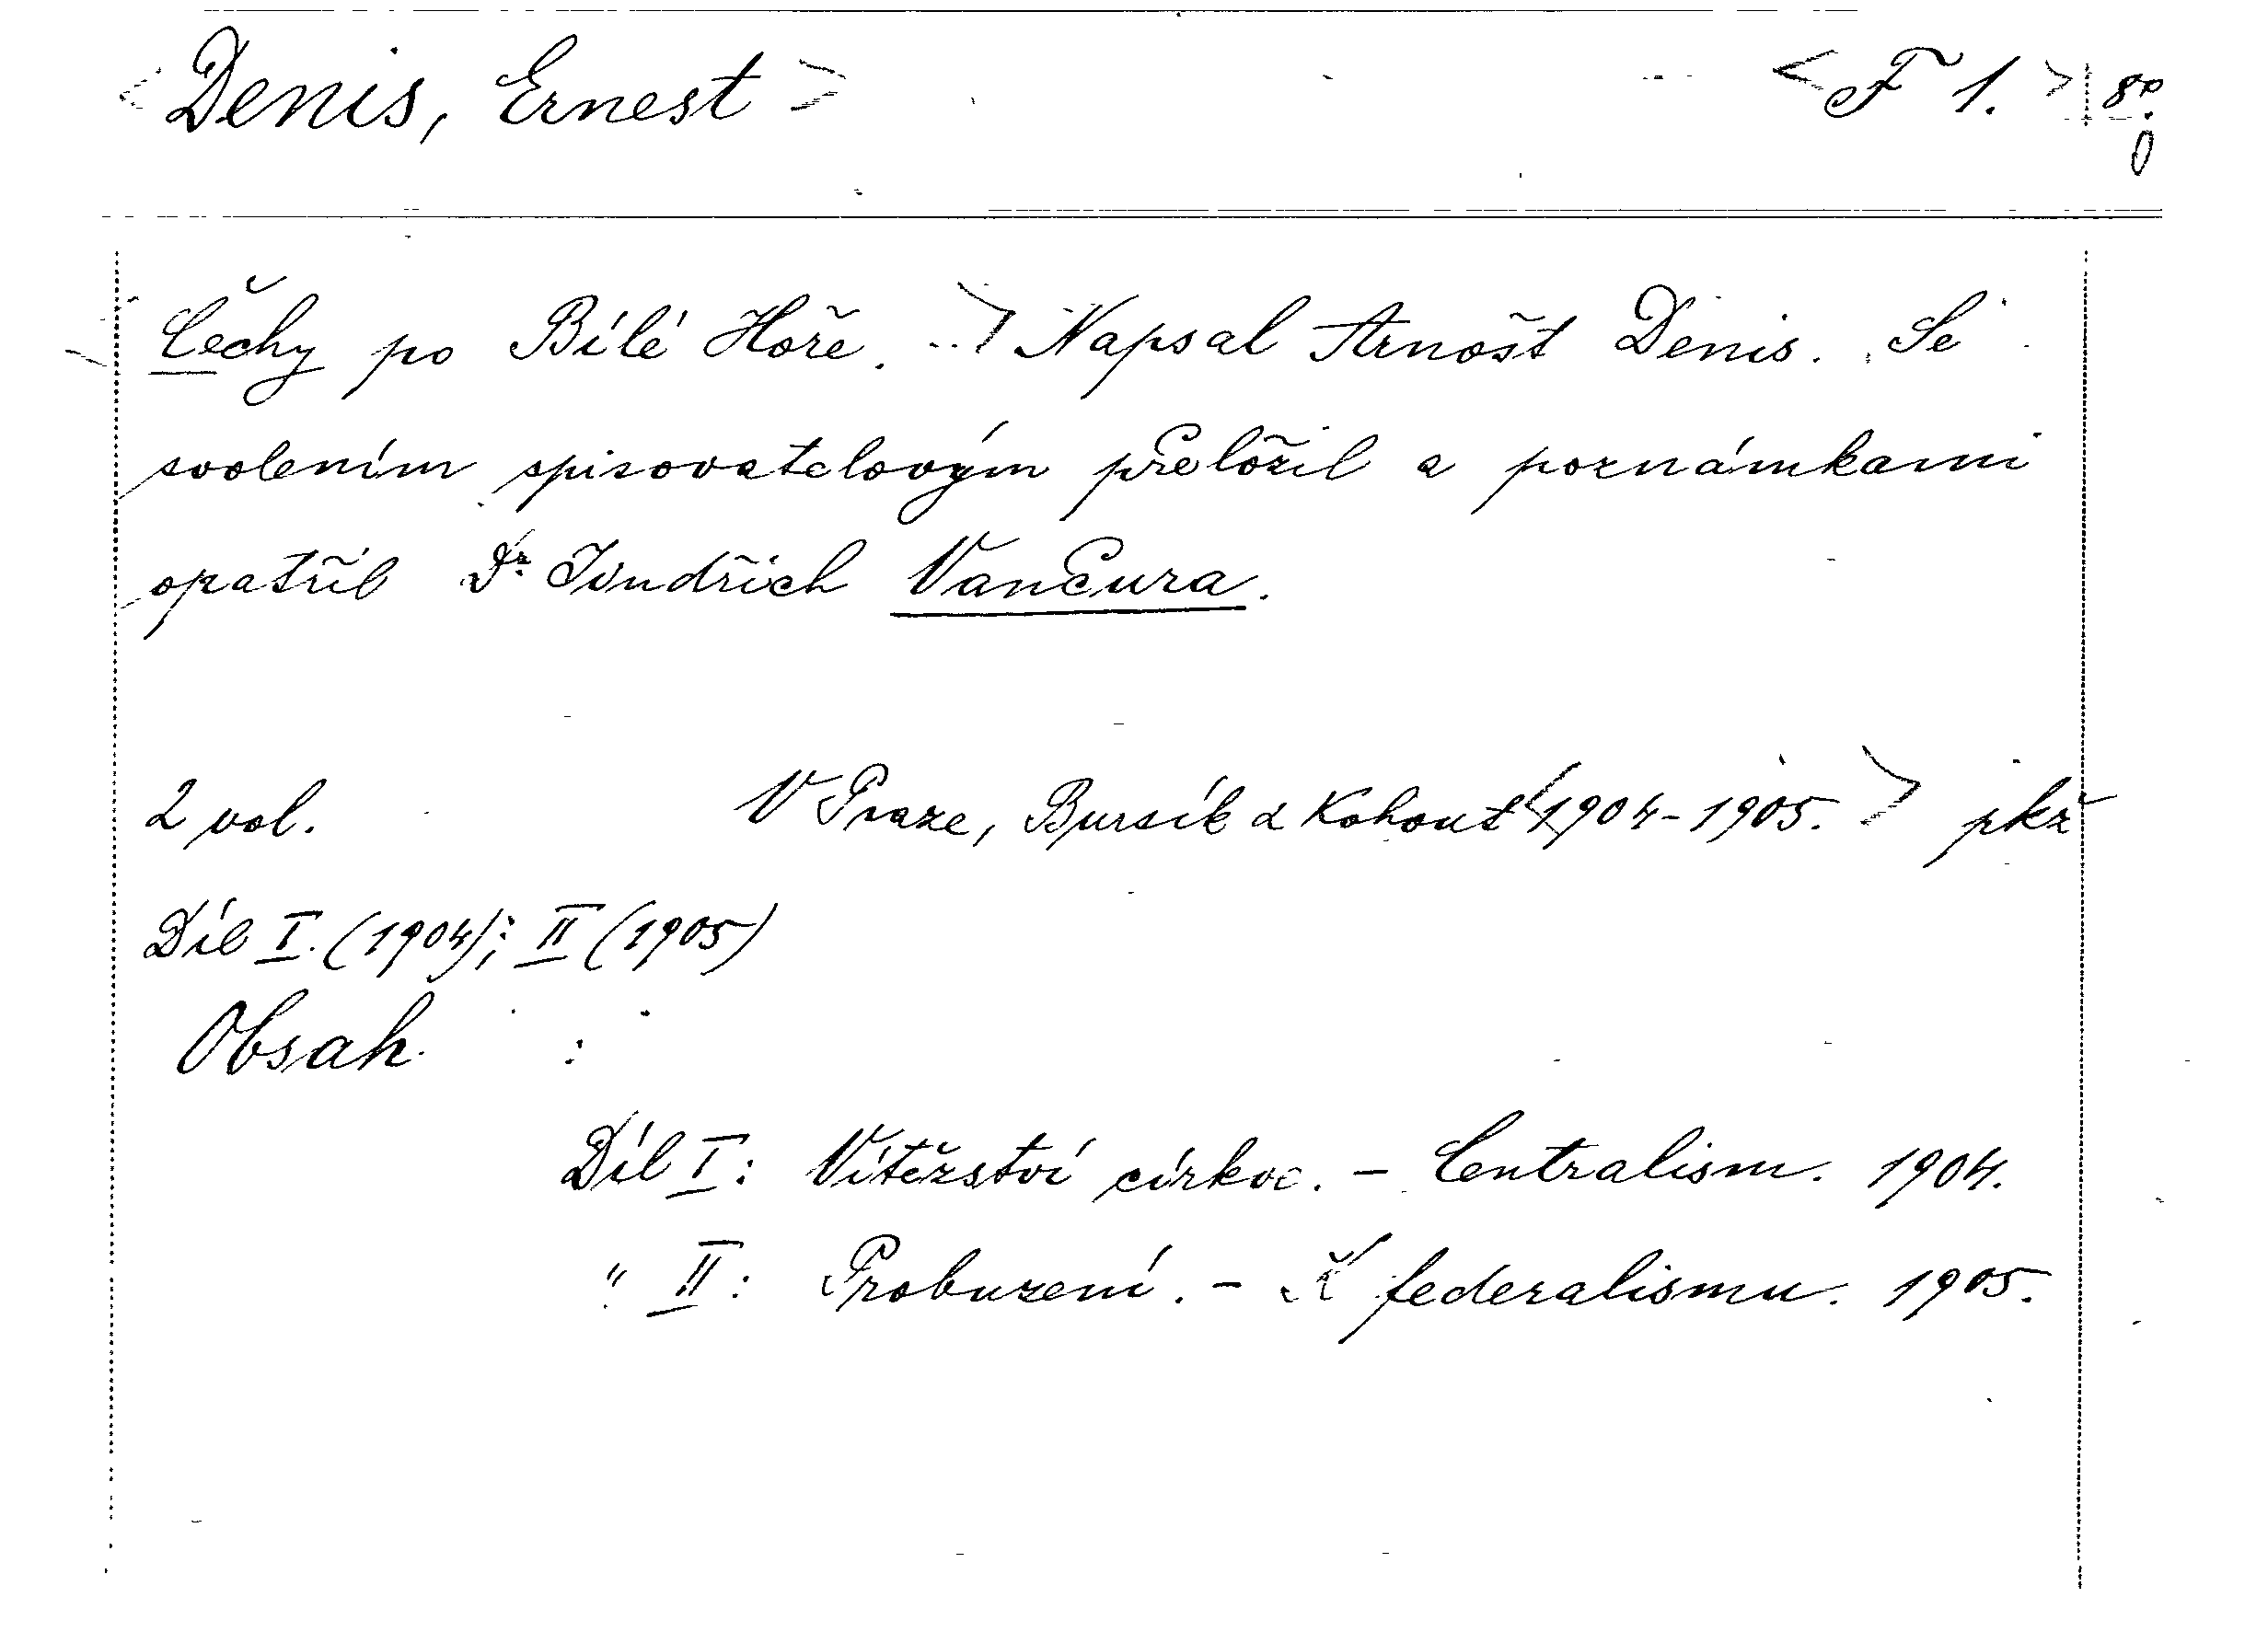 <Denis, Ernest> <F 1.> 8°.
Čechy po Bílé Hoře. > Napsal Arnošt Denis. Se
svolením spisovatelovým přeložil a poznámkami
opatřil Dr Jindřich Vančura.
2 vol. V Praze, Bursík a Kohout <1904-1905.> pkž
Díl I. (1904); II (1905)
Obsah :
Díl I: Vítězství církve. - Centralism. 1904.
" II: Probuzení. - K federalismu. 1905.